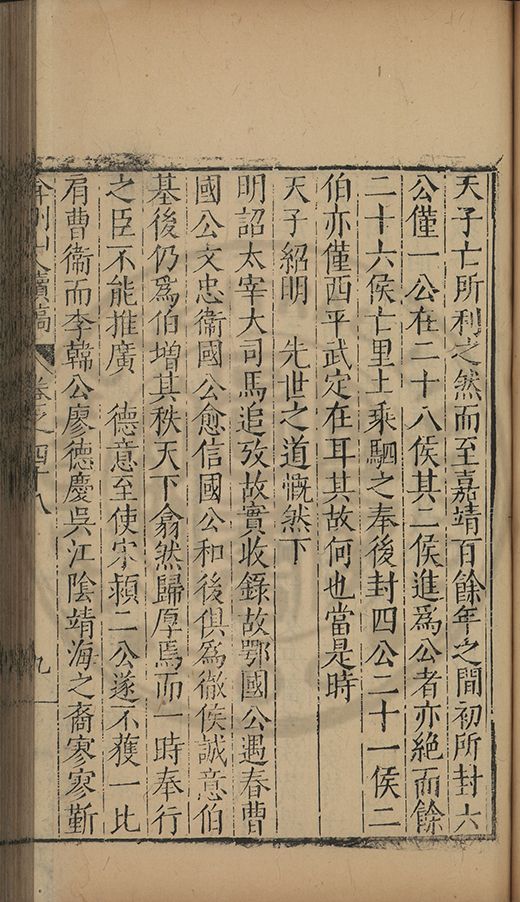 天子亡所利之然而至嘉靖百餘年之間初所封六
公僅一公在二十八侯其二侯進爲公者亦絕而餘
二十六侯亡里上乘駟之奉後封四公二十一侯二
伯亦僅西平武定在耳其故何也當是時
天子紹明　先世之道慨然下
明詔太宰大司馬追攷故實收錄故鄂國公遇春曹
國公文忠衛國公愈信國公和後俱爲徹侯誠意伯
基後仍爲伯增其秩天下翕然歸厚焉而一時奉行
之臣不能推廣　德意至使宋潁二公遂不獲一比
肩曹衞而李韓公廖德慶吳江陰靖海之裔寥寥靳
弇州山人續稿　卷之四十八　九